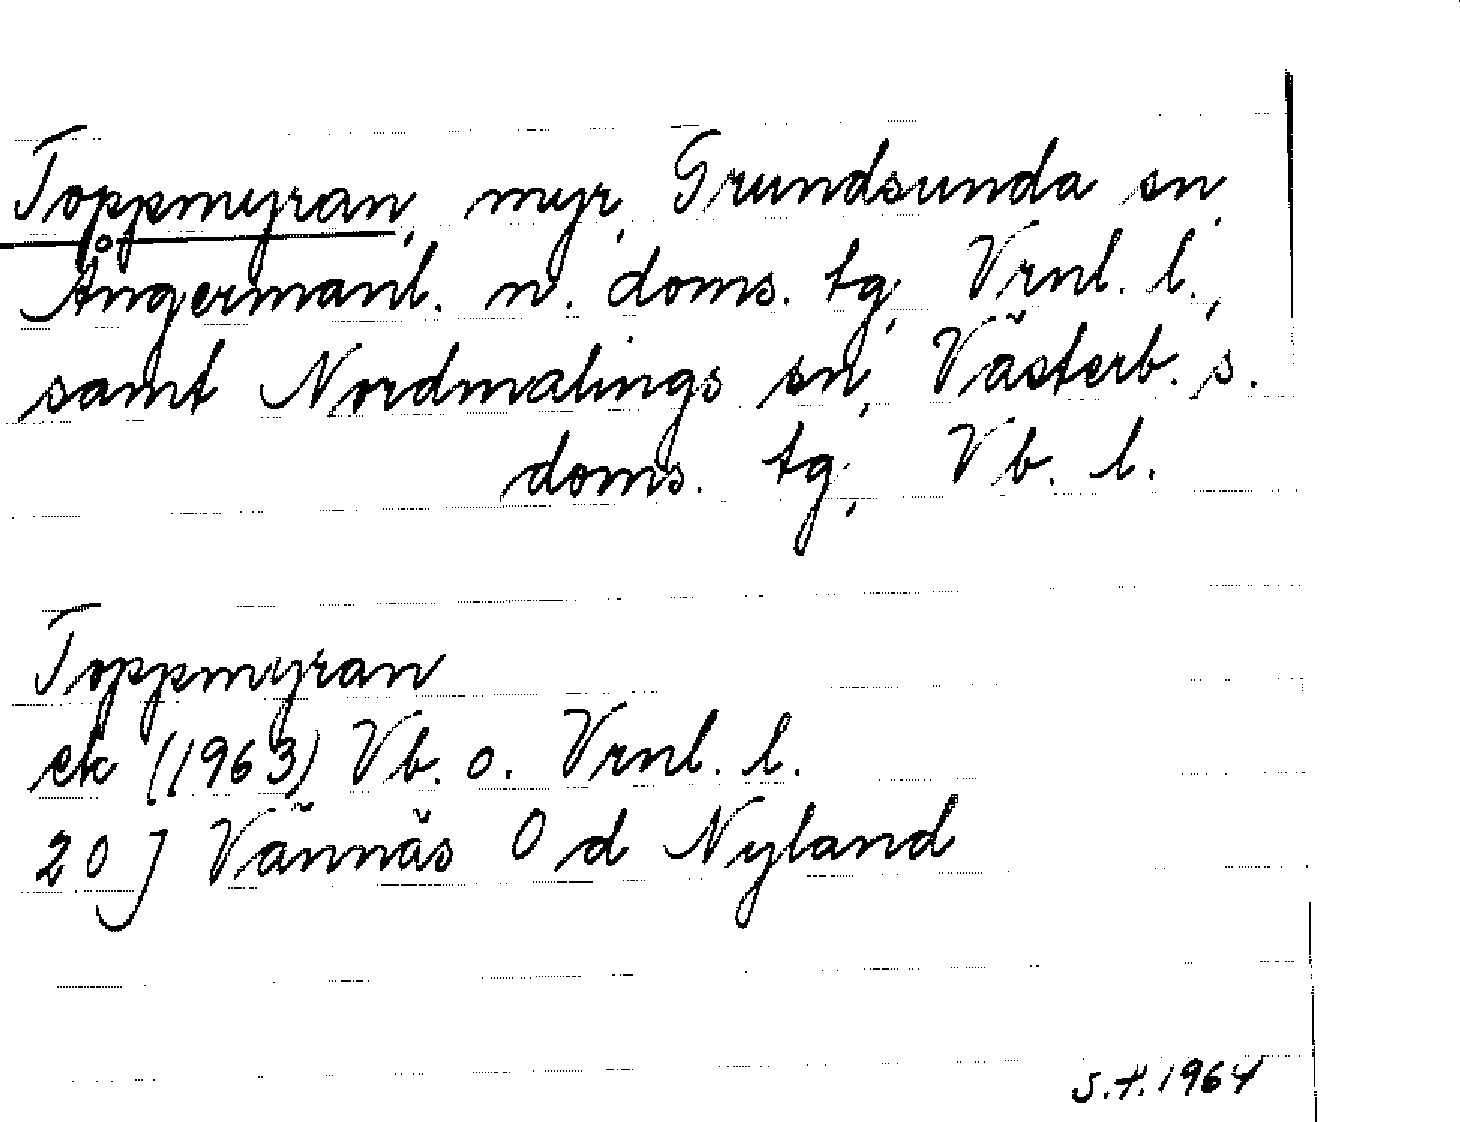 Toppmyran, myr, Grundsunda sn,
Ångermanl. n. doms. tg, Vrnl. l.,
samt Nordmalings sn, Västerb. s.
doms. tg, Vb. l.
Toppmyran
ek (1963) Vb. o. Vrnl. l.
20 J Vännäs 0 d Nyland
S.H. 1964